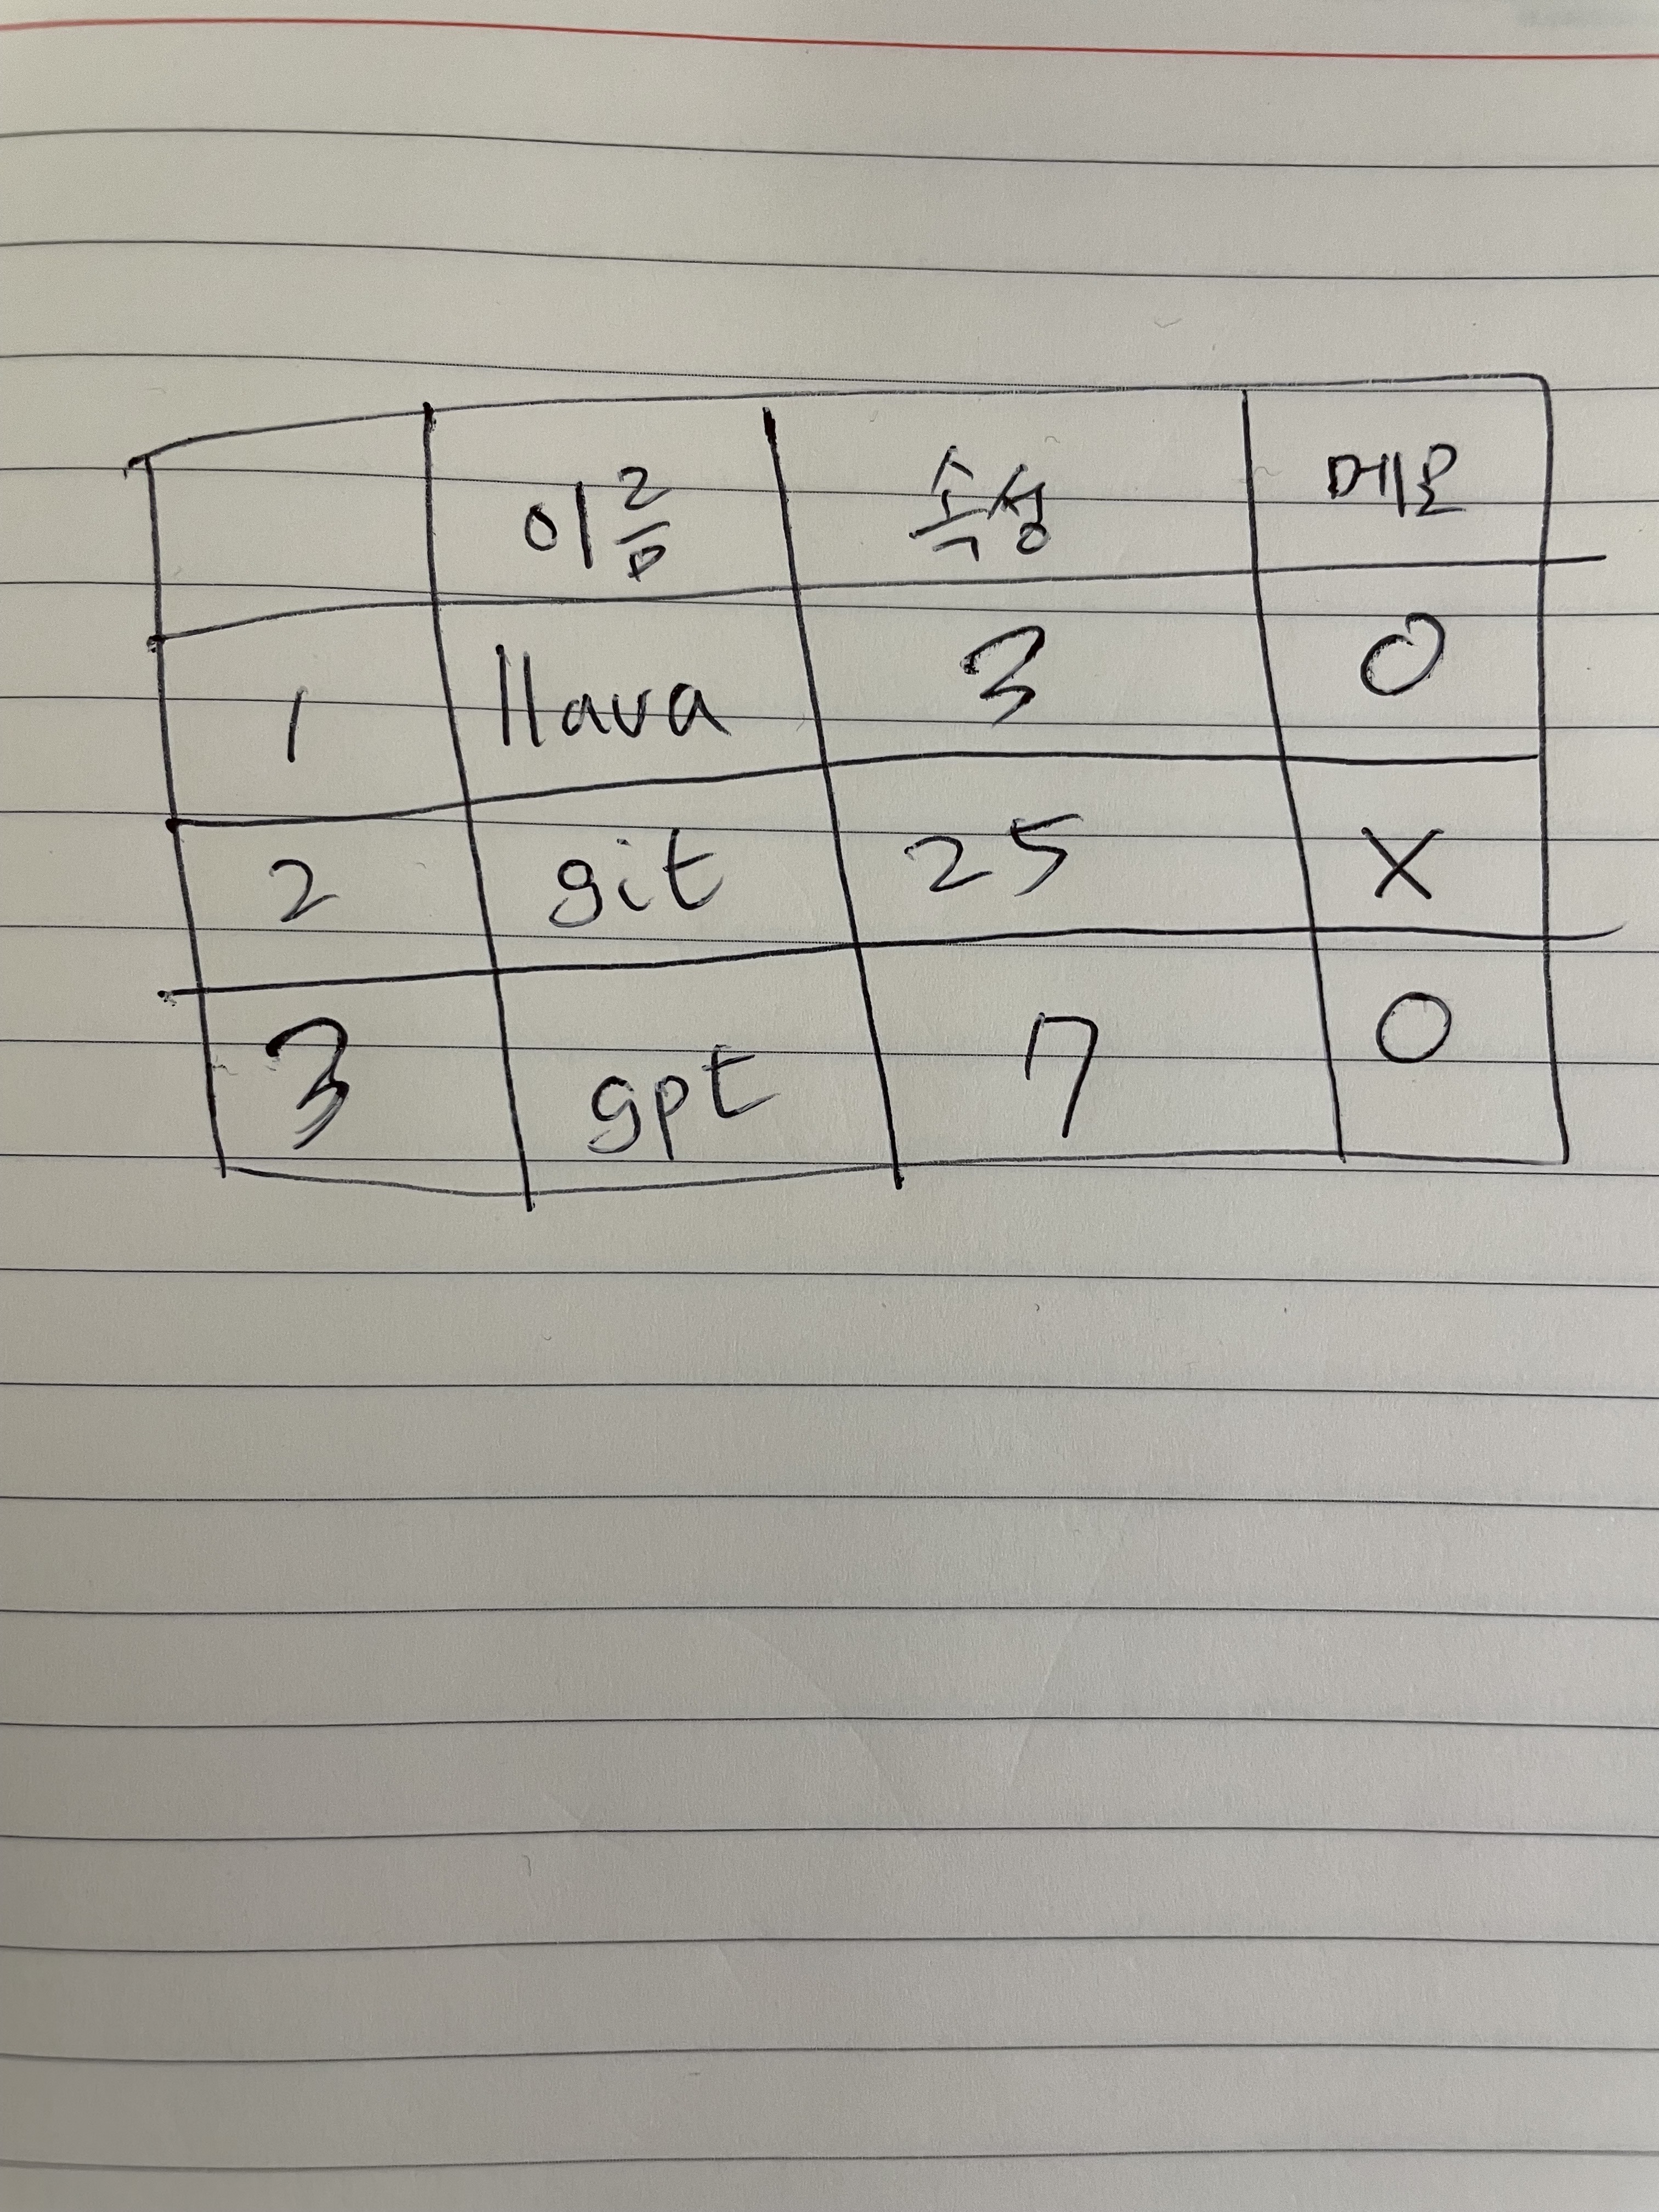 이름 속성 메모
1 llava 3 O
2 git 25 X
3 gpt 7 O